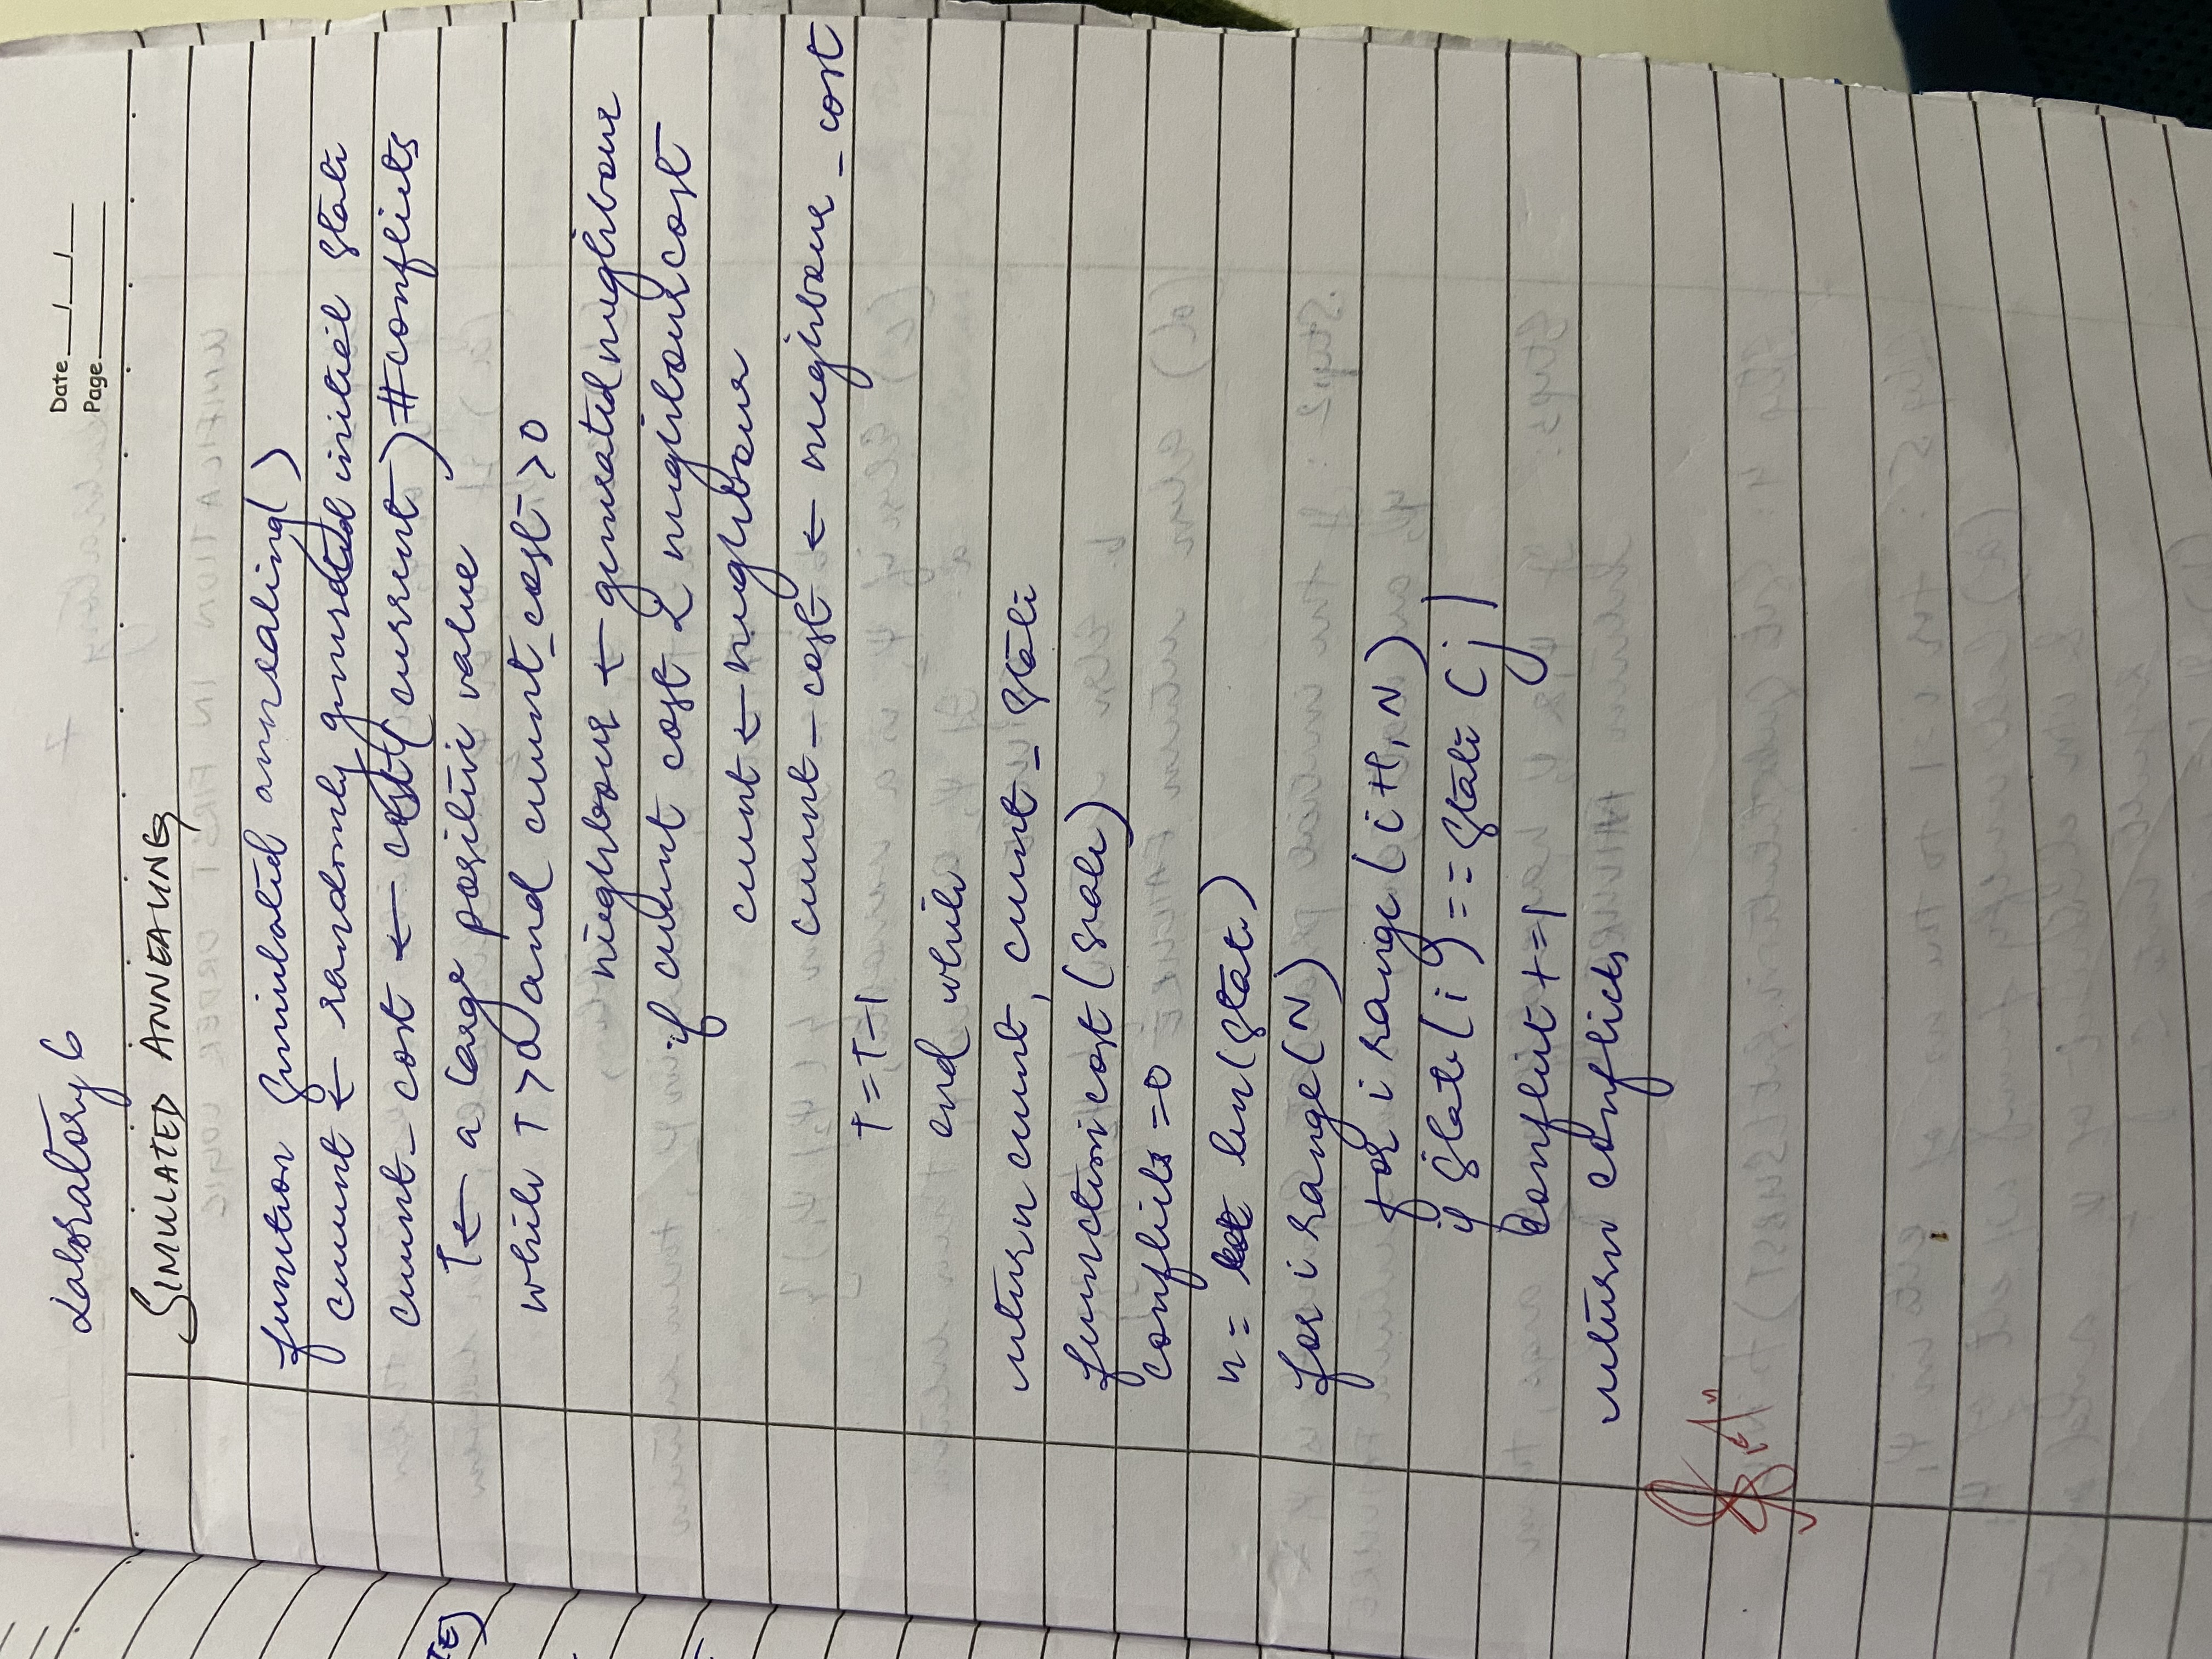 Laboratory 6
Date
Page
SIMULATED ANNEALING
function Simulated annealing()
current ← randomly generated initial state
current_cost ← cost(current) #conflicts
T ← a large positive value
while T > 0 and current_cost > 0
neighbour ← generated neighbour
if current cost < neighbour cost
current ← neighbour
current_cost ← neighbour_cost
T = T-1
end while
return current, current_state
function cost(state)
conflicts = 0
n = len(state)
for i range(N)
for i range(i+1, N)
if state(i) == state(j)
conflict += 1
return conflicts